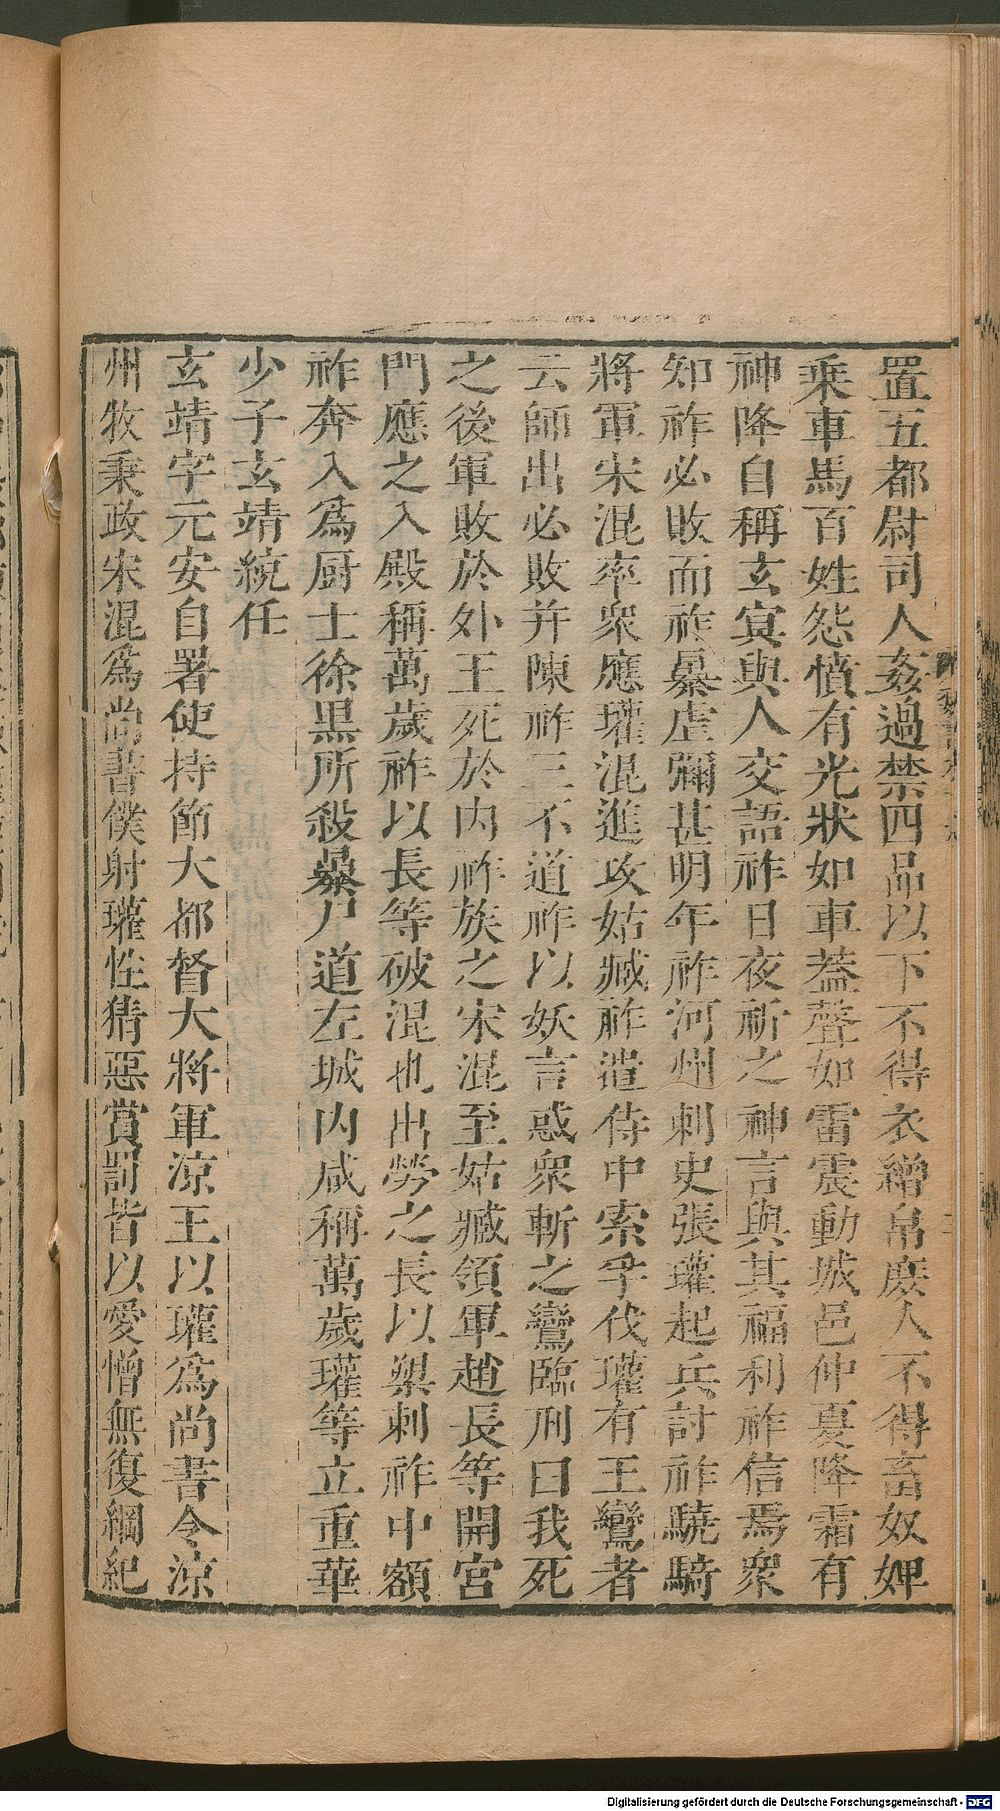 置五都尉司人姦過禁四品以下不得衣繒帛庶人不得畜奴婢
乗車馬百姓怨憤有光狀如車蓋聲如雷震動城邑仲夏降霜有
神降自稱玄㝠與人交語祚日夜祈之神言與其福利祚信焉衆
知祚必敗而祚暴虐彌甚明年祚河州刺史張瓘起兵討祚驍騎
將軍宋混率衆應瓘混進攻姑臧祚遣侍中索孚伐瓘有王鸞者
云師出必敗并陳祚三不道祚以妖言惑衆斬之鸞臨刑曰我死
之後軍敗於外王死於内祚族之宋混至姑臧領軍趙長等開宮
門應之入殿稱萬歲祚以長等破混也出勞之長以槊刺祚中額
祚奔入爲厨士徐黒所殺暴尸道左城内咸稱萬歲瓘等立重華
少子玄靖統任
玄靖字元安自署使持節大都督大將軍涼王以瓘爲尚書令涼
州牧秉政宋混爲尚書僕射瓘性猜惡賞罰皆以愛憎無復綱紀
Digitalisierung gefördert durch die Deutsche Forschungsgemeinschaft - DFG